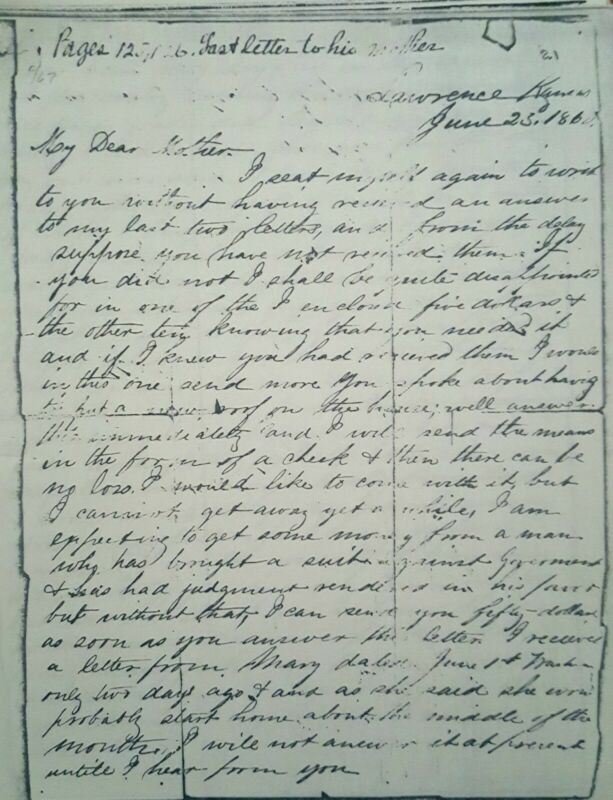 Pages 125, 126. Last letter to his mother
21
Lawrence Kansas
June 23d 1860.
My Dear Mother.
I seat myself again to write
to you without having received an answer
to my last two letters, and from the delay
suppose you have not received them. if
you did not I shall be quite disappointed
for in one of the I enclosed five dollars &
the other ten knowing that you needed it
and if I knew you had received them I would
in this one send more You spoke about having
to put a new roof on the house; well answer
this immediately and I will send the means
in the form of a check & then there can be
no loss. I would like to come with it, but
I cannot get away yet a while, I am
expecting to get some money from a man
who has brought a suit against Goverment
& has had judgment rendered in his favor
but without that, I can send you fifty-dollars
as soon as you answer this letter I received
a letter from Mary dated June 1st
only two days ago & and as she said she would
probably start home about the middle of the
month, I will not answer it at present
untile I hear from you